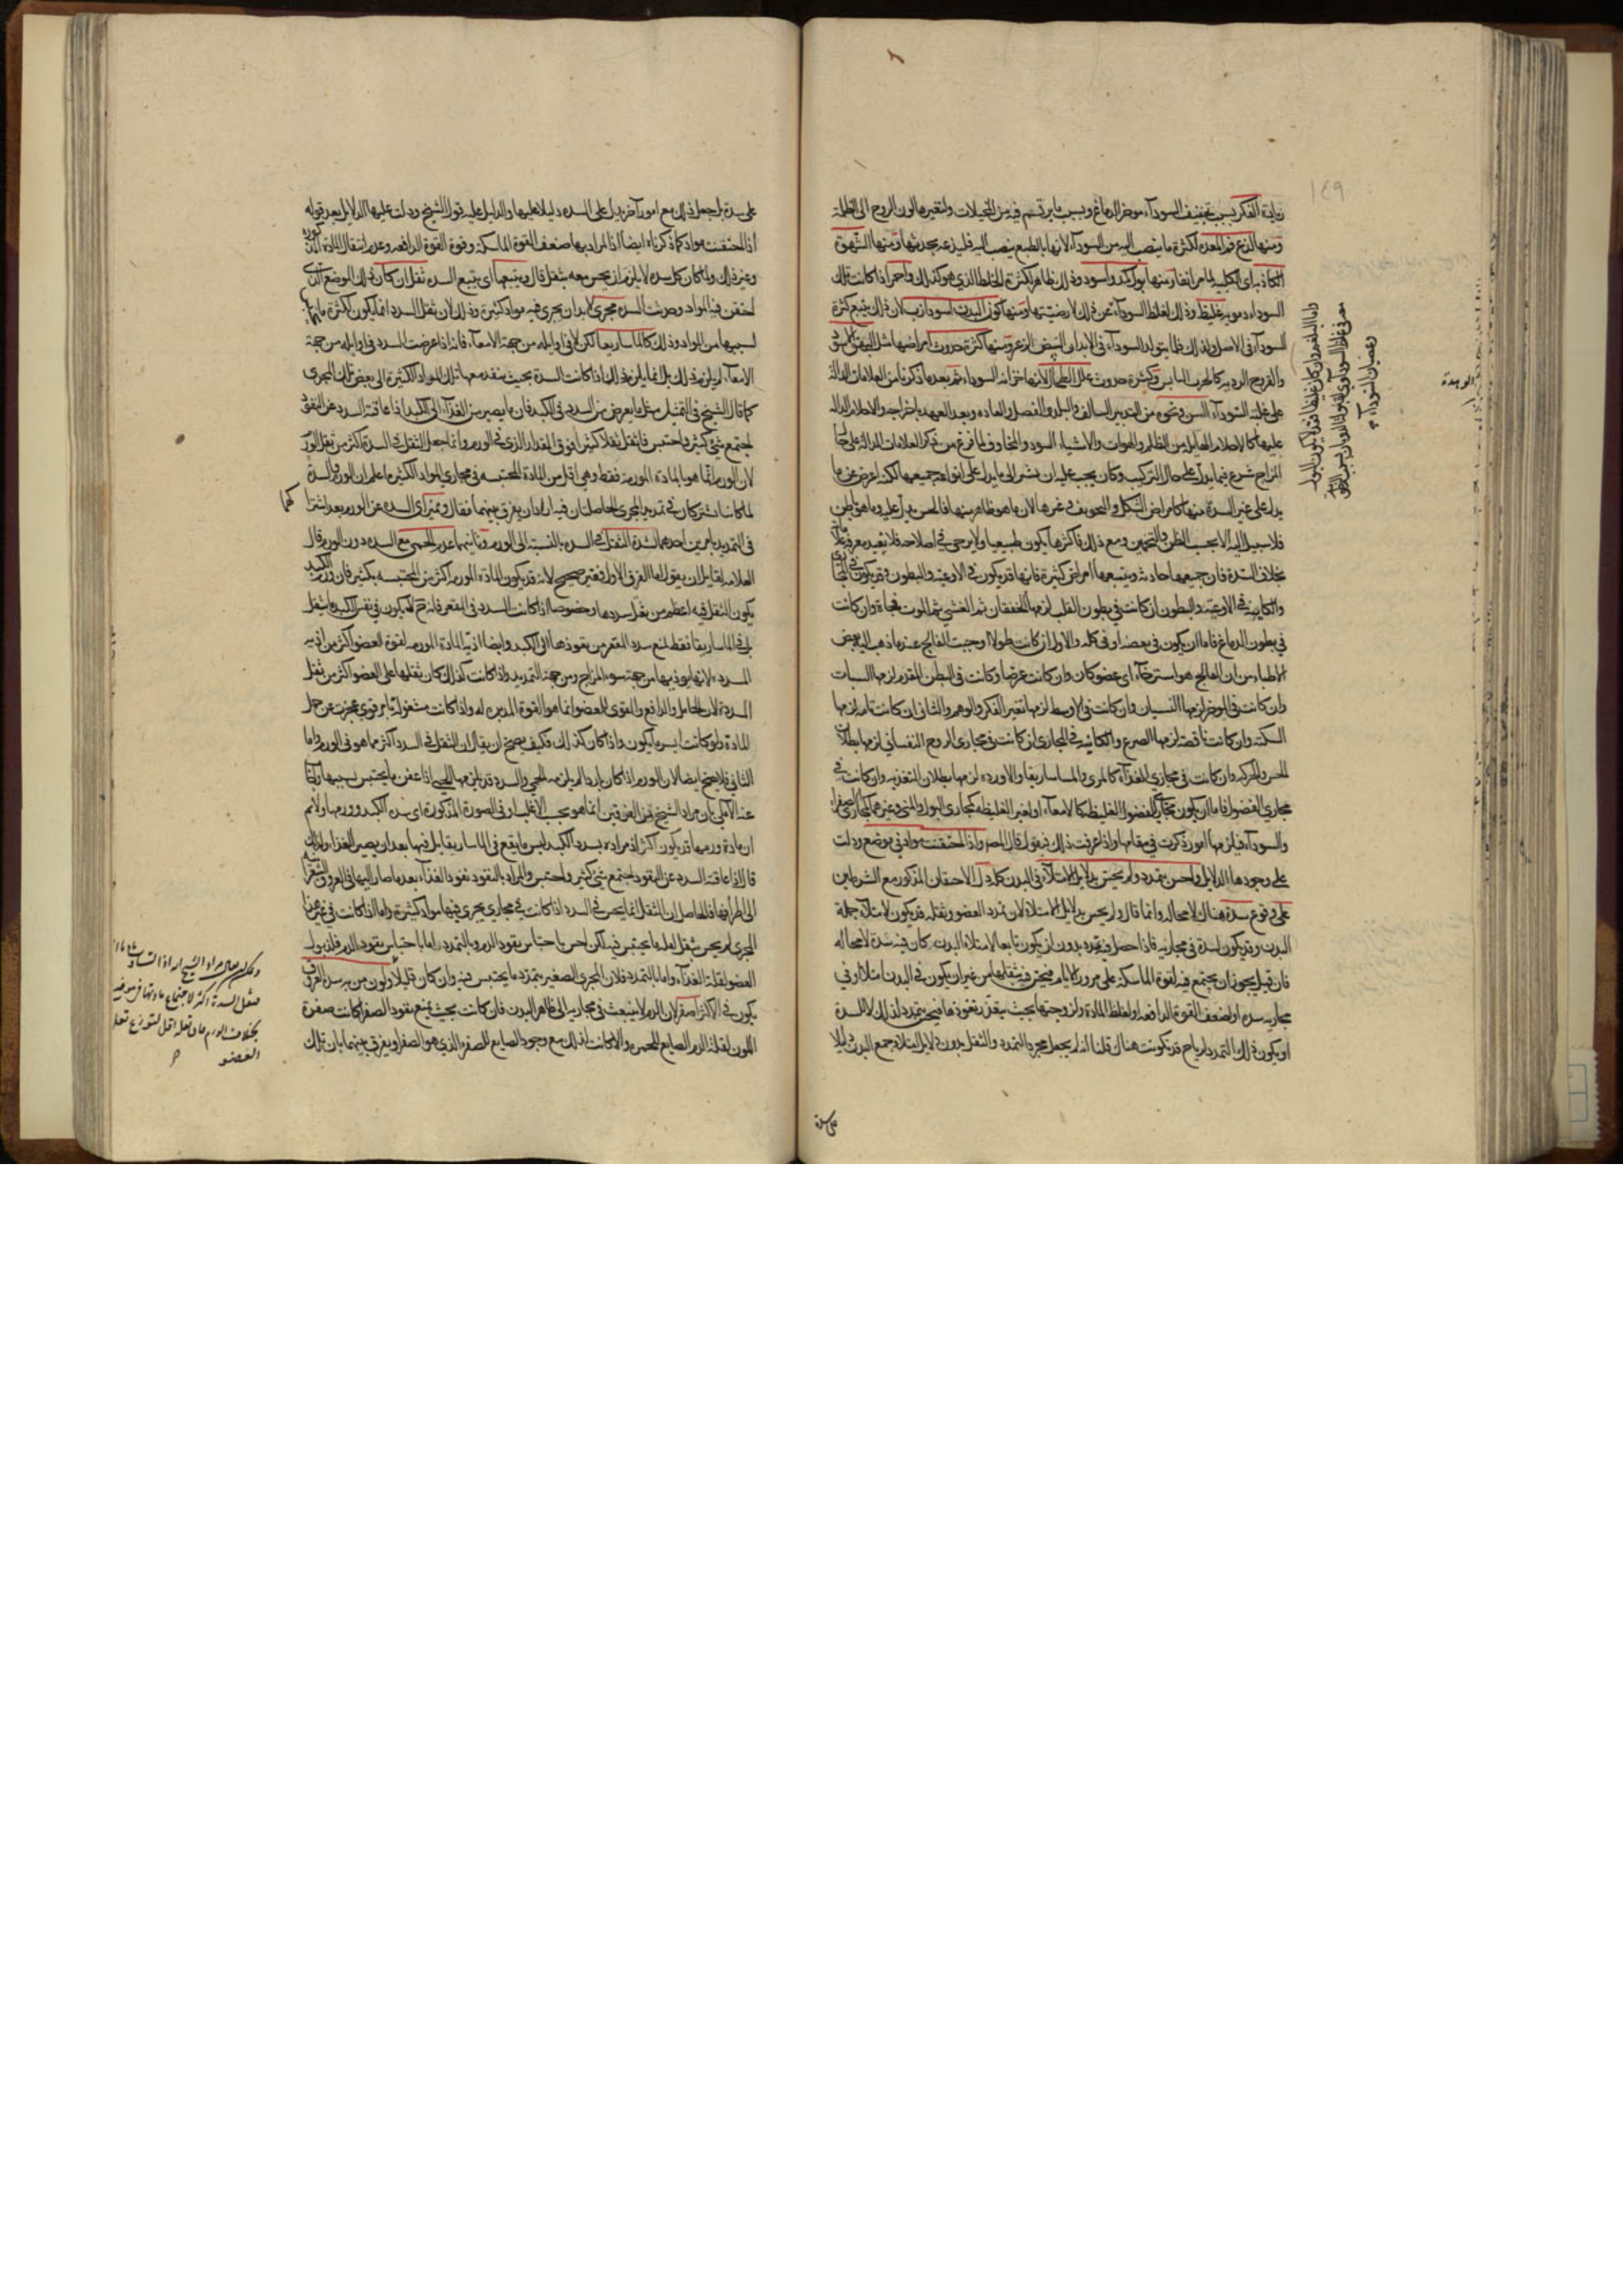 زيادة الفكر بسبب تجفيف السوداء موخر الدماغ وبسبب ما يرتسم فيه من التخيلات ولتغيرها لون الروح الى الظلمة
ومنها لذع فم المعدة لكثرة ما ينصب اليه من السوداء لانها بالطبع ينصب اليه فيلذعه بحدتها ومنها الشهوة
الكاذبة اى الكلبية لما مر انفا ومنها بول كمد واسود وذلك ظاهر لكثرة الخلط الذي هو كذلك واحمر اذا كانت تلك
السوداء دموية غليظ وذلك لغلظ السوداء عن ذلك لارضيتها ومنها كون البدن اسود ازب لان ذلك يتبع كثرة
السوداء فى الاصل ولذلك قلما يتولد السوداء فى الابدان البيض الزعر ومنها كثرة حدوث امراضها مثل البهق الاسود
والقروح الردية كالجرب اليابس وكثرة حدوث علل الطحال لانها خزانه السوداء ثم بعد ما ذكرنا من العلامات الدالة
على غلبة السوداء السن ونحوه من التدبير السالف والبلد والفصل والعادة وبعد العهد باخراجه والاحلام الدالة
عليها كالاحلام الهايلة من الظلم والهوات والاشياء السود والمخاوف ولما فرغ من ذكر العلامات الدالة على
المزاج شرع فيما يدل على حال التركيب وكان يجب عليه ان يشير الى ما يدل على انواعه جميعها لكنه اعرض عن ما
يدل على غير السدة منها كامراض الشكل والتجويف وغيرها لان ما هو ظاهر منها فالحس يدل عليه وما هو باطن
فلا سبيل اليه الا بحسب الظن والتخمين ومع ذلك فاكثرها يكون طبيعيا ولا يرجى فى اصلاحه فلا يفيد معرفة
بخلاف السدة فان جميعها حادثة ويتبعها امراض كثيرة فانها قد يكون فى الاوعية والبطون وقد يكون فى المجارى
والكاينة فى الاوعية والبطون ان كانت فى بطون القلب لزمها الخفقان ثم الغشى ثم الموت فجاة وان كانت
في بطون الدماغ فاما ان يكون فى بعضه او فى كله والاول ان كانت طولا اوجبت الفالج عند ما ذهب اليه بعض
الاطباء من ان الفالج هو استرخاء اى عضو كان وان كانت عرضا وكانت فى البطن المقدم لزمها السبات
وان كانت فى الموخر لزمها النسيان وان كانت فى الاوسط لزمها تغير الفكر والوهم والثانى ان كانت تامة لزمها
السكتة وان كانت ناقصة لزمها الصرع والكاينة في المجارى ان كانت فى مجارى الروح النفسانى لزمها بطلان
الحس والحركة وان كانت فى مجارى الغذاء كالمرى والماساريقا والاوردة لزمها بطلان التغذية وان كانت فى
مجاري الفضول فاما ان يكون مجارى الفضول الغليظة كالامعاء او لغير الغليظة كمجارى البول والمنى وغيرهما كمجارى الصفراء
والسوداء فيلزمها امور ذكرت في مقامها واذا عرفت ذلك فنقول قال المص واذا احتقنت مواد في موضع ودلت
على وجودها الدلايل واحس بتمدد ولم يحس بدلايل الامتلاء فى البدن كله دل الاحتقان المذكور مع الشرطين
على وقوع سدة هناك لا محالة وانما قال ولم يحس بدلايل الامتلاء لان تمدد العضو وثقله قد يكون لامتلاء جملة
البدن وقد يكون لسدة فى مجاريه فاذا حصل فيه تمدد بدون ان يكون تابعا لامتلاء البدن كان فيه سدة لا محالة
فان قيل يجوز ان يجتمع فيه لقوة الماسكة على مرور الايام فيحس فيه بثقلها من غير ان يكون فى البدن امتلاء او في
مجاريه سدة او لضعف القوة الدافعة او لغلظ المادة ولزوجتها بحيث يتعذر نفوذها فيحس بتمدد لذلك لا لسدة
او يكون ذلك التمدد لرياح قد تكونت هناك قلنا انه لم يجعل مجرد التمدد والثقل بدون دلايل امتلاء جميع البدن دليلا
على سدة
واما البلغم وان كان غليظا فقد لا يكون البول
على سدة بل جعل ذلك مع امور آخر يدل على السدة دليلا عليها والدليل عليه قول الشيخ ودلت عليها الدلايل بعد قوله
اذا احتقنت مواد كما ذكرناه ايضا اذ المراد بها ضعف القوة الماسكة وقوة القوة الدافعة وعدم انتقال المادة
وغير ذلك ولما كان كل سدة لا يلزم ان يحس معه بثقل قال ويتبعها اى يتبع السدة ثقل ان كان ذلك الموضع الذى
احتقن فيه المواد وحدثت السدة مجرى لا بد ان يجرى فيه مواد كثيرة وذلك لان ثقل السدد انما يكون لكثرة ما
بسببها من المواد وذلك كالماساريقا لكن لا فى اوايله من جهة الامعاء فانه اذا عرضت السدد فى اوايله من جهة
الامعاء لم يلزمه ذلك بل انما يلزمه ذلك اذا كانت السدة بحيث ينفد معها تلك المواد الكثيرة الى بعض تلك المجرى
كما قال الشيخ فى التمثيل مثل ما يعرض من السدد فى الكبد فان ما يصير من الغذاء الى الكبد اذا عاقته السدد عن النفوذ
اجتمع شئ كثير واحتبس فاثقل ثقلا كثيرا فوق المقدار الذى فى الورم وانما جعل الثقل فى السدة اكثر من ثقل الورم
لان الورم انما هو المادة المورمة فقط وهى اقل من المادة المحتبسة فى مجاري المواد الكثيرة واعلم ان الورم والسدة
لما كانا يشتركان فى تمديد المجرى الحاصلان فيه اراد ان يفرق بينهما فقال وتميز اى السدة عن الورم بعد اشتراكهما
فى التمديد بامرين احدهما شدة الثقل فى السدة بالنسبة الى الورم وثانيهما عدم الحمى مع السدة دون الورم قال
العلامة لقايل ان يقول اما الفرق الاول فغير صحيح لانه قد يكون المادة المورمة اكثر من المحتبسة بكثير فان ورم الكبد
يكون الثقل فيه اعظم من ثقل سددها وخصوصا اذا كانت السدد فى المقعر فانه ح لا يكون في نفس الكبد ما يثقل
بل فى الماساريقا فقط لمنع سدد المقعر من نفوذها الى الكبد وايضا اذية المادة المورمة لقوة العضو اكثر من اذية
السدد لانها يوذيها من جهة سوء المزاج ومن جهة التمديد واذا كانت كذلك كان ثقلها على العضو اكثر من ثقل
السدد لان الحامل والدافع والقوى للعضو انما هو القوة المدبرة له واذا كانت مشغولة بامر قوى عجزت عن حمل
المادة ولو كانت ايسر ما يكون واذا كان كذلك فكيف يصح ان يقال ان الثقل فى السدد اكثر مما هو فى الورم واما
الثانى فلا يصح ايضا لان الورم اذا كان باردا لم يلزمه الحمى والسدد قد يلزمها الحمى اذا عفن ما يحتبس بسببها
عنه الاملى بان مراد الشيخ من الفرقين انما هو بحسب الاغلب او فى الصورة المذكورة اى سدد الكبد وورمها ولا نم
ان مادة ورمها قد يكون اكثر اذ مراده بسدد الكبد ليس ما يقع فى الماساريقا بل فيها بعد ان يصير الغذا اليها ولذلك
قال اذا عاقته السدد عن النفوذ اجتمع شئ كثير واحتبس والمراد بالنفوذ نفوذ الغذاء بعد ما صار اليها في العروق الشعرية
الى اطرافها فالحاصل ان الثقل انما يحس فى السدد اذا كانت فى مجارى يجرى فيها مواد كثيرة واما اذا كانت في غير هذا
المجرى لم يحس بثقل لقلة ما يحتبس فيه لكن احس باحتباس نفوذ الدم وبالتمدد اما باحتباس نفوذ الدم فلذبول
العضو لقلة الغذاء واما بالتمدد فلان المجرى الصغير يتمدد بما يحتبس فيه وان كان قليلا ولون من به سدد العروق
يكون فى الاكثر اصفر لان الدم لا ينبعث فى مجاريه الى ظاهر البدن فان كانت بحيث يمنع نفوذ الصفرا كانت صفرة
اللون لقلة الدم الصابغ المحمر والا كانت لذلك مع وجود الصابغ المصفر الذي هو الصفرا ويفرق بينهما بان تلك
ويمكن ان يقال مراد الشيخ انه اذا تساوت
فثقل السدة اكثر لاجتماع مادتها فى موضع
بخلاف الورم فان ثقله اقل لتوزع ثقله
العضو